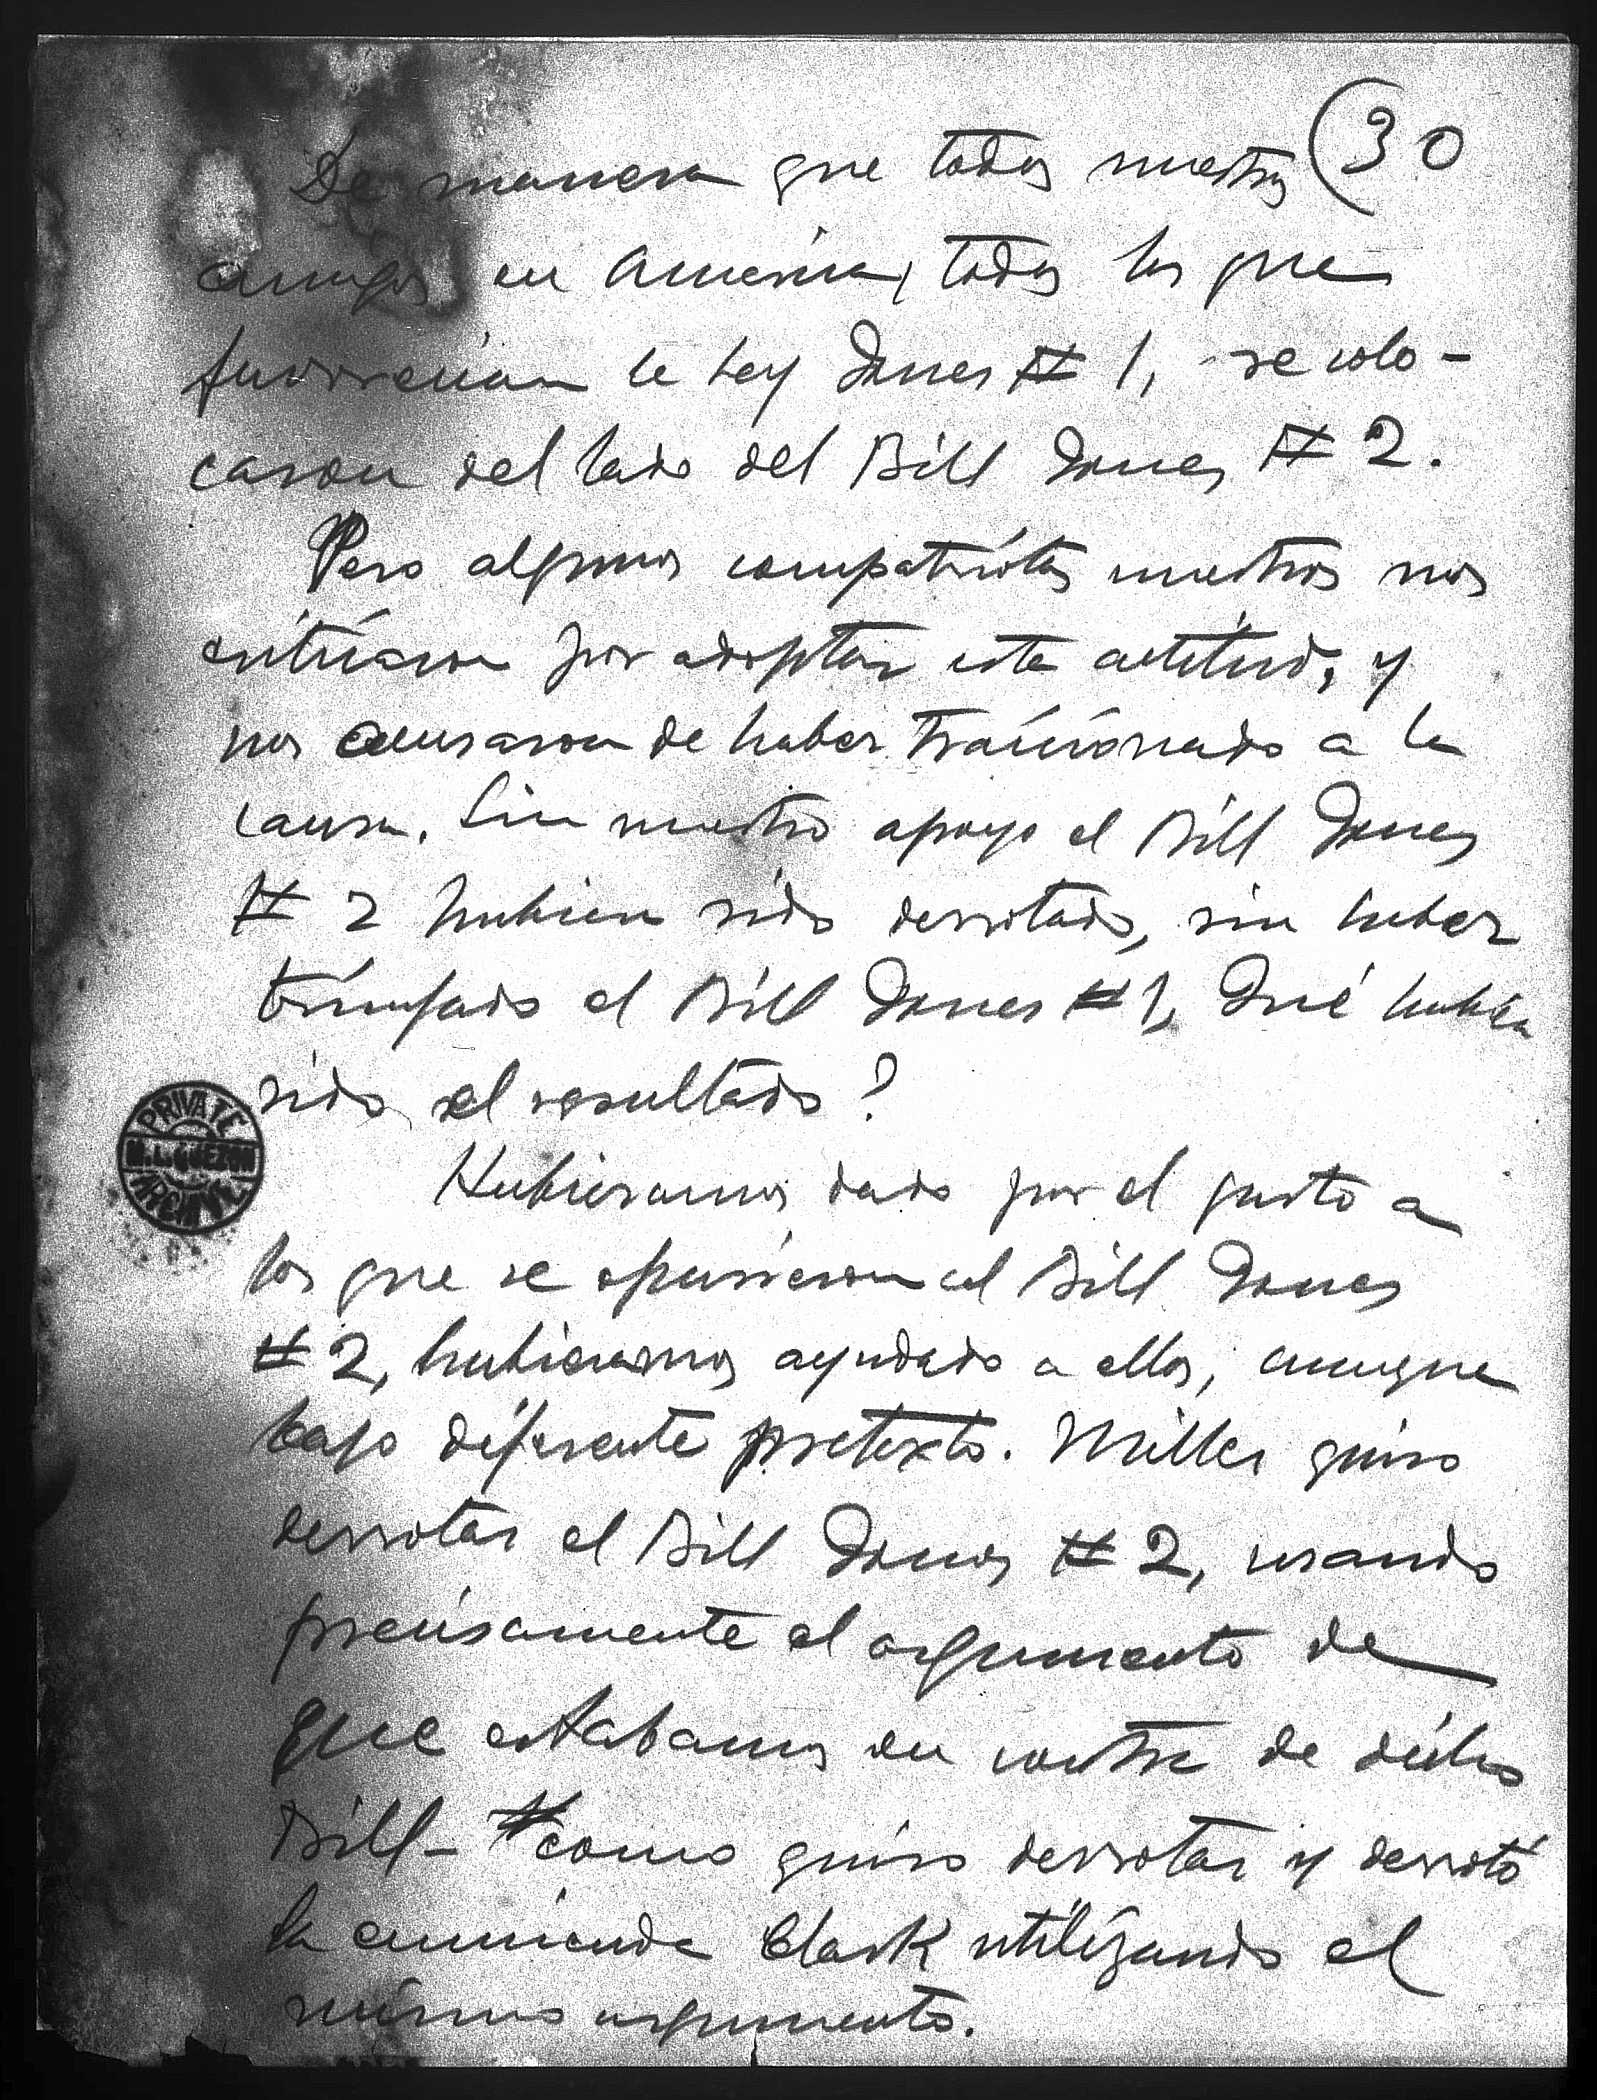 30
De manera que todos nuestros
amigos en America, todos los que
favorecian la Ley Jones # 1, se colo-
caron del lado del Bill Jones # 2.
Pero algunos compatriotas nuestros nos
criticaron por adoptar esta actitud, y
nos acusaron de haber traicionado a la
causa. Sin nuestro apoyo el Bill Jones
# 2 hubiera sido derrotado, sin haber
triunfado el Bill Jones # 1, Qué hubiera
sido el resultado?
Hubieramos dado por el gusto a
los que se opusieron al Bill Jones
# 2, hubieramos ayudado a ellos, aunque
bajo diferente pretexto. Miller quiso
derrotar el Bill Jones # 2, usando
precisamente el argumento de
que estabamos en contra de dicho
Bill - como quiso derrotar y derrotó
la enmienda Clark utilizando el
mismo argumento.
PRIVATE
M.L. QUEZON
ARCHIVE